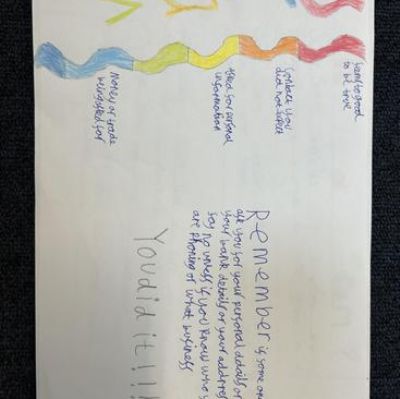 Sam to good
to be true
Contact you
did not expect
Asked for personal
information
Money or trade
being asked for
Remember if some one
ask you for your personal details or
your bank details or your address
say no unless if you know who
are phoning or what business
You did it!!!